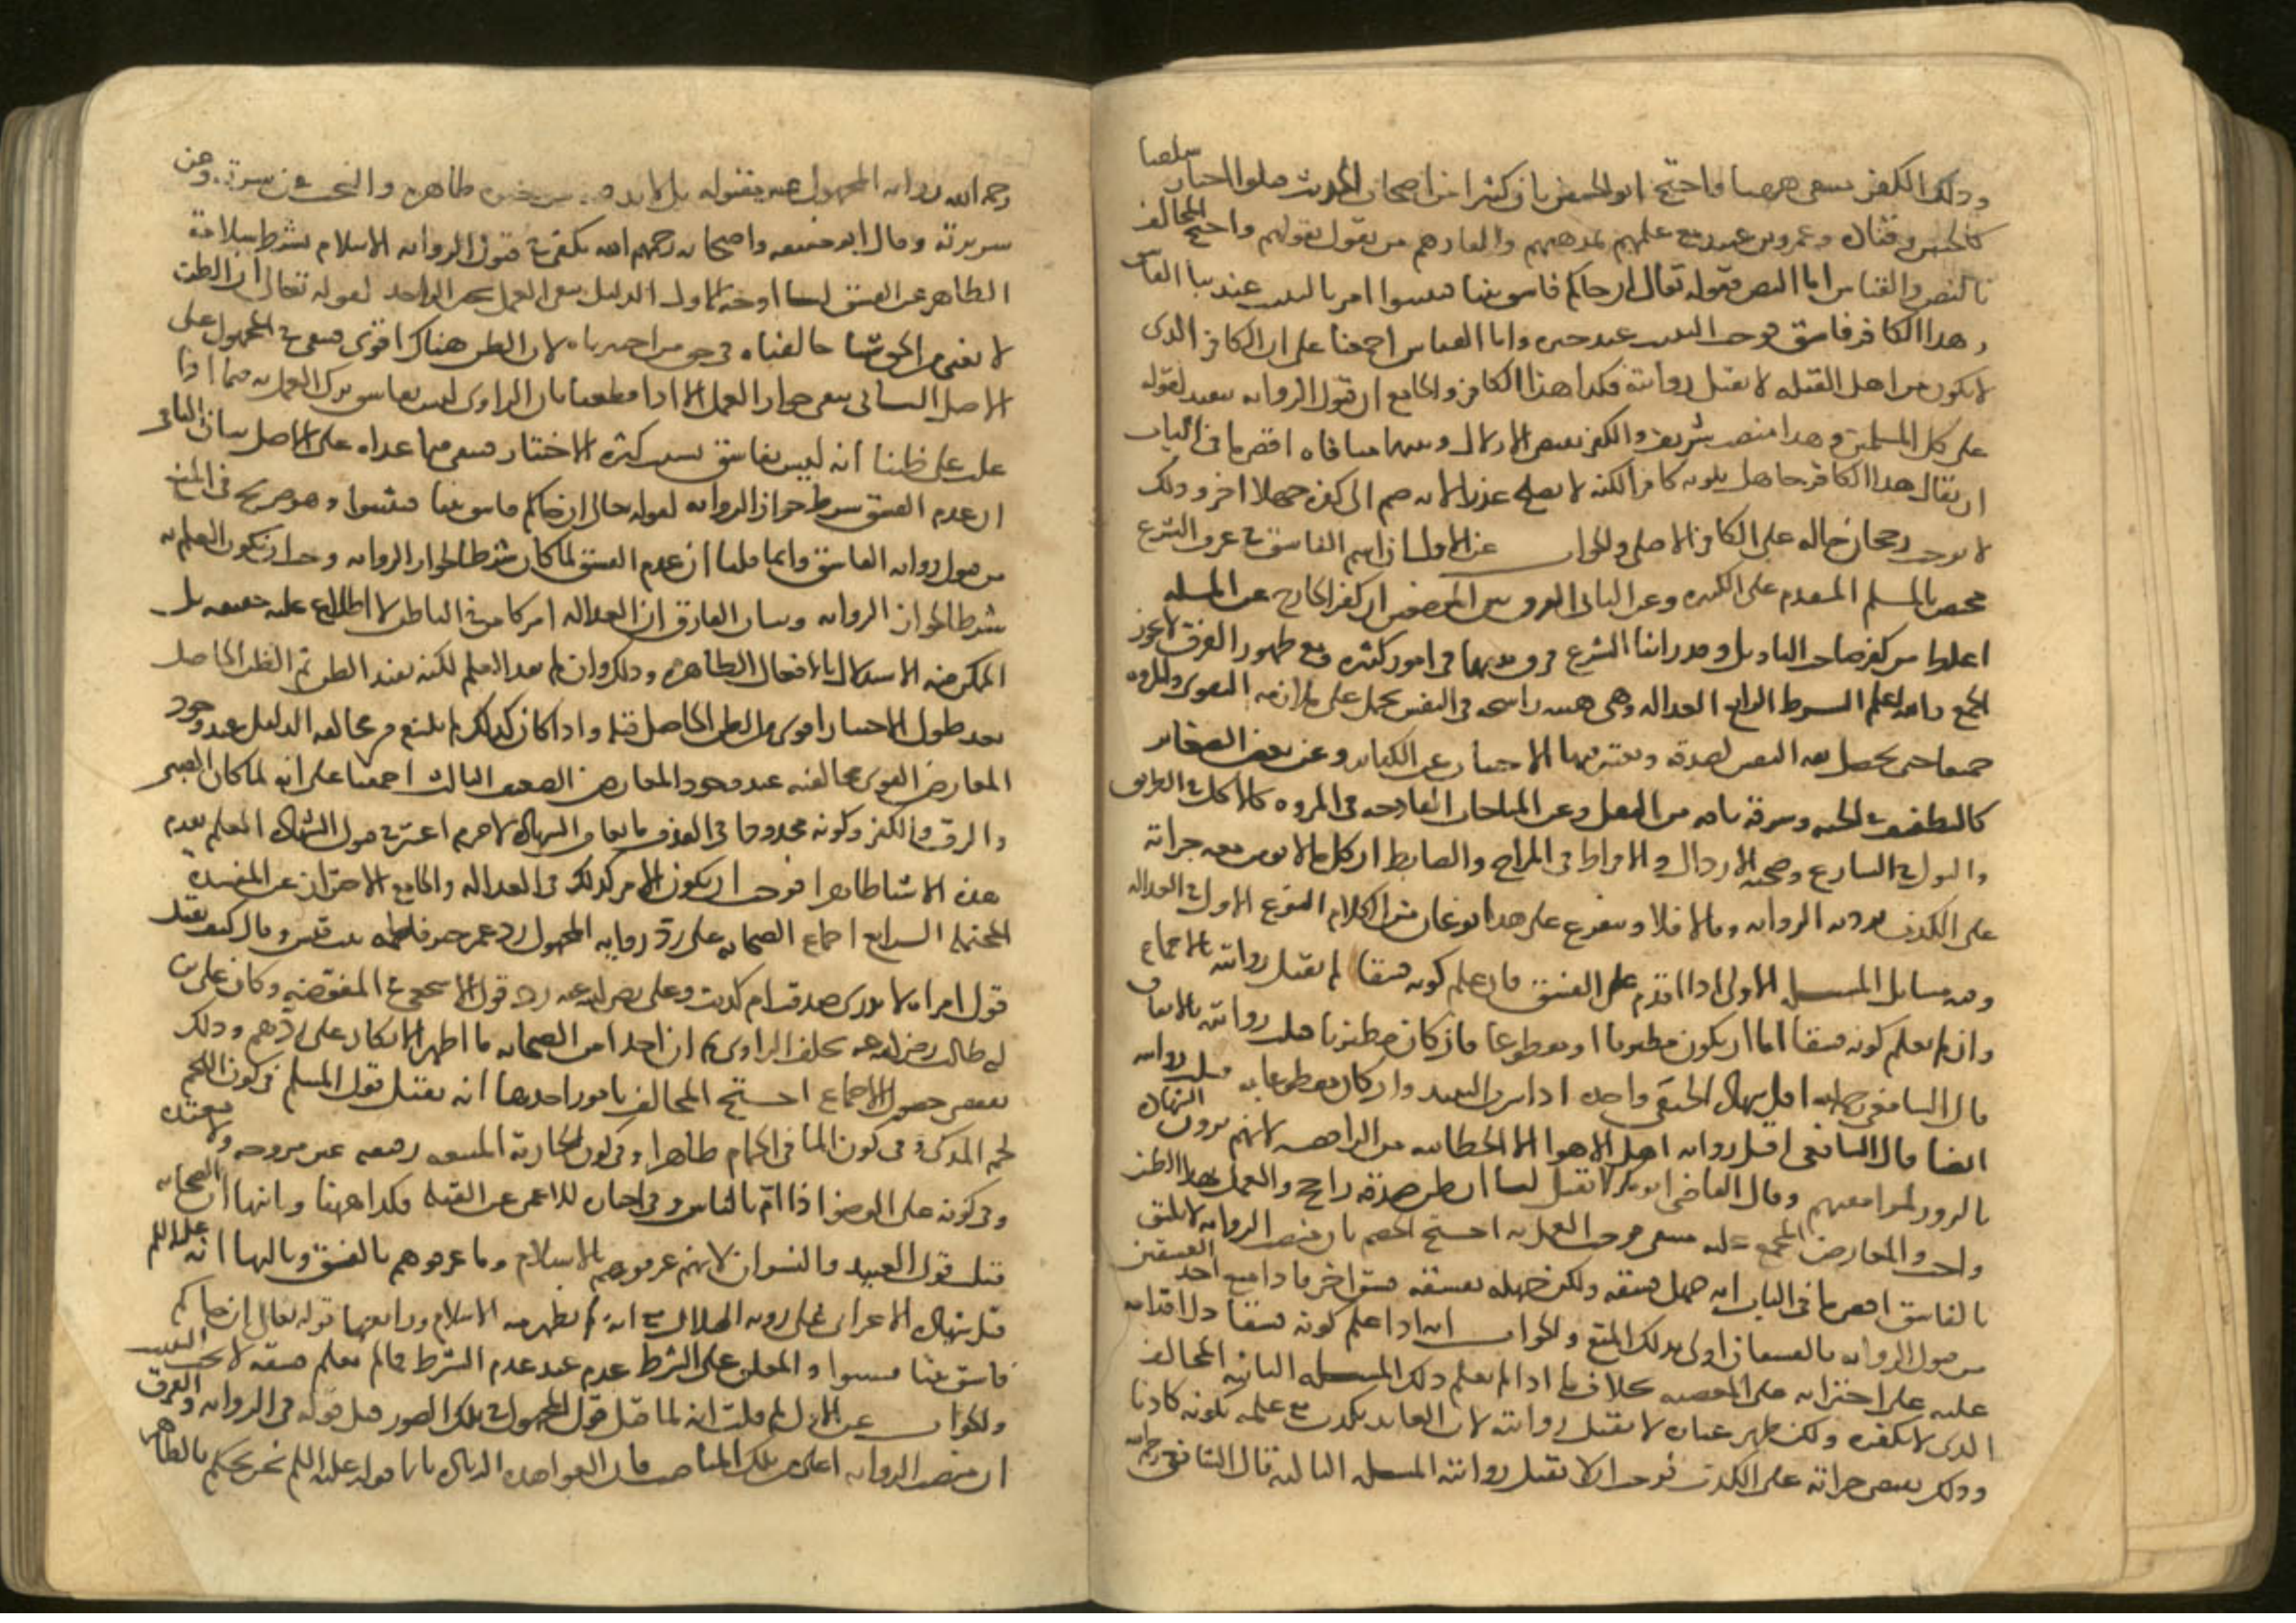 وذلك الكفر يقتضي واحتج ابو الحسين بان كثيرا من اصحاب الحديث قبلوا اخبار سلفنا
كالحسن وقتادة وعمرو بن عبيد مع علمهم بمذهبهم واكفارهم من يقول بقولهم واحتج المخالف
بالنص والقياس اما النص فقوله تعالى ان جاكم فاسق بنبا فتبينوا امر بالتثبت عند نبا الفاسق
وهذا الكافر فاسق فوجب التثبت عند خبره واما القياس اجمعنا على ان الكافر الذي
لا يكون من اهل القبلة لا تقبل روايته فكذا هذا الكافر والجامع ان قبول الرواية تنفيذ لقوله
على كل المسلمين وهذا منصب شريف والكفر يقتضي الاذلال وبينهما منافاة اقصى ما في الباب
ان يقال هذا الكافر جاهل بكونه كافرا لكنه لا يصلح عذرا لانه ضم الى كفره جهلا اخر وذلك
لا يوجب رجحان حاله على الكافر الاصلي والجواب عن الاول ان اسم الفاسق في عرف الشرع
مختص بالمسلم المقدم على الكبيرة وعن الثاني الفرق بين الموضعين ان كفر الخارج عن الملة
اغلظ من كفر صاحب التاويل وقد راينا الشرع فرق بينهما في امور كثيرة ومع ظهور الفرق لا يجوز
الجمع والله اعلم الشرط الرابع العدالة وهي هيئة راسخة في النفس تحمل على ملازمة التقوى والمروة
جميعا حتى تحصل ثقة النفس بصدقه ويعتبر فيها الاجتناب عن الكبائر وعن بعض الصغائر
كالتطفيف في الحبة وسرقة باقة من البقل وعن المباحات القادحة في المروة كالاكل في الطريق
والبول في الشارع وصحبة الارذال والافراط في المزاح والضابط ان كل ما لا يؤمن معه جراته
على الكذب ترد به الرواية وما لا فلا ويتفرع على هذا نوعان من الكلام النوع الاول في العدالة
وفيه مسائل المسئلة الاولى اذا اقدم على الفسق فان علم كونه فسقا لم تقبل روايته بالاجماع
وان لم يعلم كونه فسقا اما ان يكون مظنونا او مقطوعا فان كان مظنونا قبلت روايته بالاتفاق
قال الشافعي اقبل شهادة الحنفي واحده اذا شرب النبيذ وان كان مقطوعا به قبلت روايته
ايضا قال الشافعي اقبل رواية اهل الاهوا الا الخطابية من الرافضة لانهم يرون الشهادة
بالزور لموافقيهم وقال القاضي ابو بكر لا تقبل لنا ان ظن صدقه راجح والعمل بهذا الظن
واجب والمعارض المجمع عليه منتف فوجب العمل به احتج الخصم بان منصب الرواية لا يليق
بالفاسق اقصى ما في الباب انه جهل فسقه ولكن جهله بفسقه فسق اخر فاذا منع احد الفسقين
من قبول الرواية فالفسقان اولى بذلك المنع والجواب انه اذا علم كونه فسقا دل اقدامه
عليه على اجترائه على المعصية بخلاف ما اذا لم يعلم ذلك المسئلة الثانية المخالف
الذي لا نكفره ولكن ظهر عناده لا تقبل روايته لان المعاند يكذب مع علمه بكونه كاذبا
وذلك يقتضي جراته على الكذب فوجب الا تقبل روايته المسئلة الثالثة قال الشافعي رحمه الله
رحمه الله رواية المجهول غير مقبولة بل لا بد فيه من خبرة ظاهرة والبحث عن سيرته وعن
سريرته وقال ابو حنيفة واصحابه رحمهم الله يكفي في قبول الرواية الاسلام بشرط سلامة
الظاهر عن الفسق لنا اوجه الاول الدليل ينفي العمل بخبر الواحد لقوله تعالى ان الظن
لا يغني من الحق شيا خالفناه في حق من اختبرناه لان الظن هناك اقوى فيبقى في المجهول على
الاصل الثاني ينفي جواز العمل الا اذا قطعنا بان الراوي ليس بفاسق ترك العمل به فيما اذا
غلب على ظننا انه ليس بفاسق بسبب كثرة الاختبار فيبقى فيما عداه على الاصل بيان الثاني
ان عدم الفسق شرط جواز الرواية لقوله تعالى ان جاكم فاسق بنبا فتبينوا وهو صريح في المنع
من قبول رواية الفاسق وانما قلنا ان عدم الفسق لما كان شرطا لجواز الرواية وجب ان يكون العلم به
شرطا لجواز الرواية وبيان الفارق ان العدالة امر كامن في الباطن لا اطلاع عليه حقيقة بل
الممكن فيه الاستدلال بالافعال الظاهرة وذلك وان لم يفد العلم لكنه يفيد الظن ثم الظن الحاصل
بعد طول الاختبار اقوى من الظن الحاصل قبله واذا كان كذلك لم يلزم من مخالفة الدليل عند وجود
المعارض القوي مخالفته عند وجود المعارض الضعيف الثالث اجمعنا على انه لما كان الصبى
والرق والكفر وكونه محدودا في القذف مانعا من الشهادة لا جرم اعتبر في قبول الشهادة العلم بعدم
هذه الاشيا ظاهرا فوجب ان يكون الامر كذلك في العدالة والجامع الاحتراز عن المفسدة
المحتملة الرابع اجماع الصحابة على رد رواية المجهول رد عمر خبر فاطمة بنت قيس وقال كيف نقبل
قول امراة لا ندري صدقت ام كذبت وعلي رضي الله عنه رد قول الاشجعي في المفوضة وكان علي بن
ابي طالب رضي الله عنه يحلف الراوي ثم ان احدا من الصحابة ما اظهر الانكار على ردهم وذلك
يقتضي حصول الاجماع احتج المخالف بامور احدها انه يقبل قول المسلم في كون اللحم
لحم المذكى وفي كون الما في الحمام طاهرا وفي كون الجارية المبيعة رقيقة غير مزوجة ولا معتدة
وفي كونه على الوضو اذا ام بالناس وفي اخباره للاعمى عن القبلة فكذا ههنا وثانيها ان الصحابة
قبلت قول العبيد والنسوان لانهم عرفوهم بالاسلام وما عرفوهم بالفسق وثالثها انه عليه السلم
قبل شهادة الاعرابي على رؤية الهلال مع انه لم يظهر منه الا الاسلام ورابعها قوله تعالى ان جاكم
فاسق بنبا فتبينوا والمعلق على الشرط عدم عند عدم الشرط فما لم يعلم فسقه لا يجب التثبت
والجواب عن الاول لم قلت انه لما قبل قول المجهول في تلك الصور قبل قوله في الرواية والفرق
ان منصب الرواية اعلى من تلك المناصب فان القواعد قوله عليه السلم نحن نحكم بالظاهر